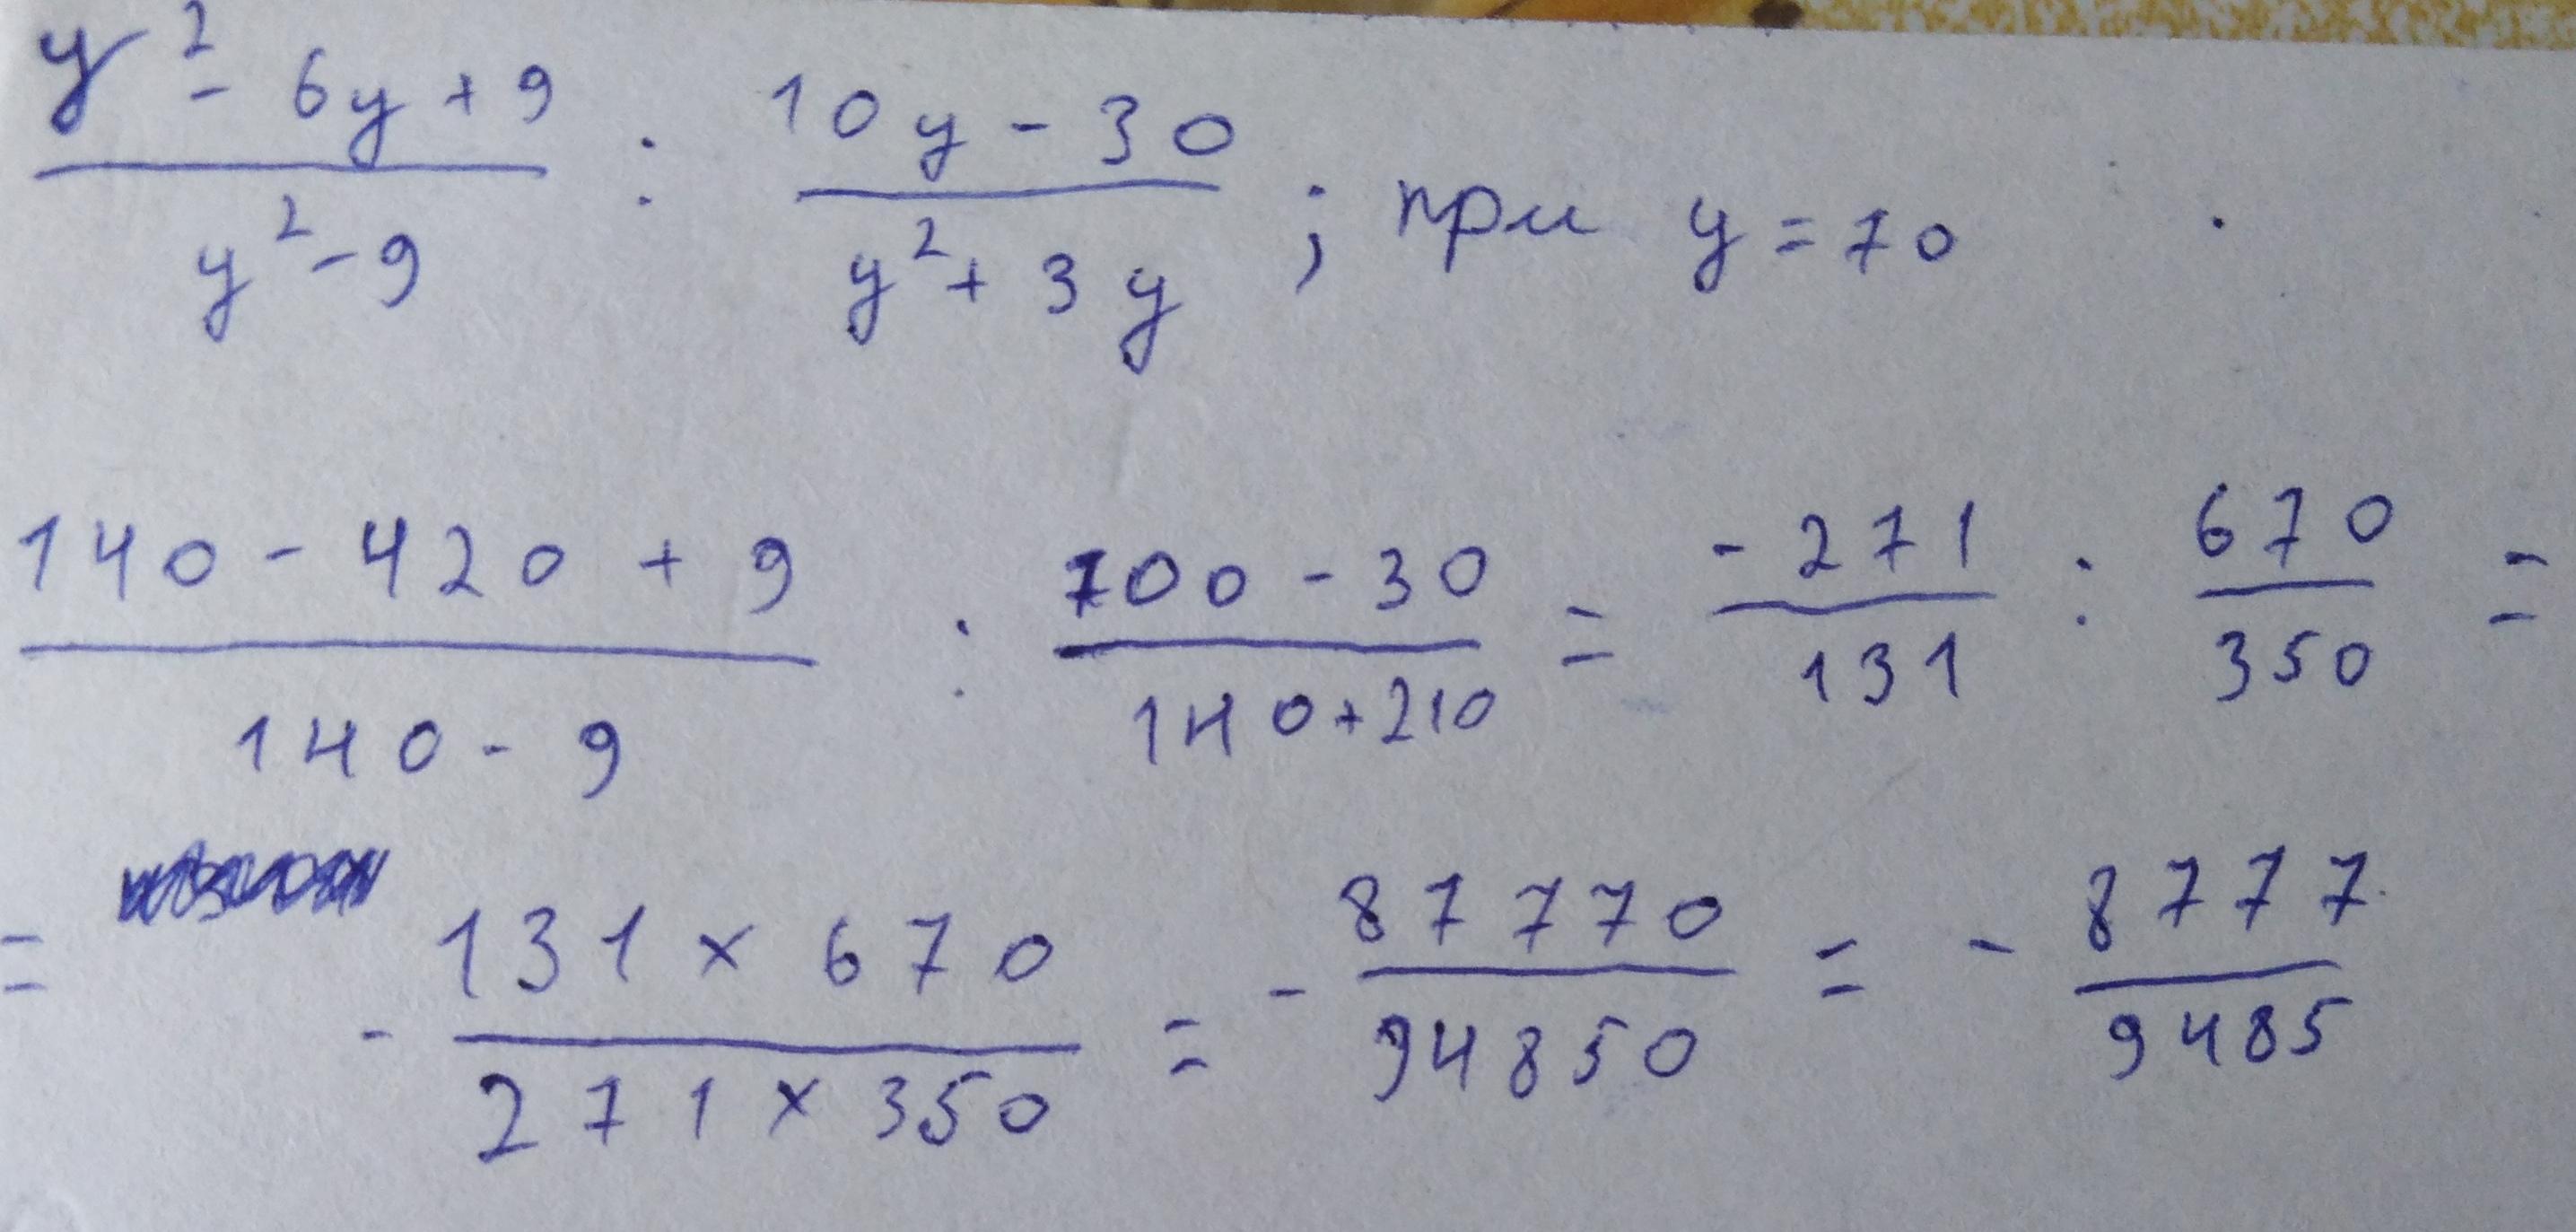 y² - 6y + 9 / y² - 9 : 10y - 30 / y² + 3y ; при y = 70
140 - 420 + 9 / 140 - 9 : 700 - 30 / 140 + 210 = -271 / 131 : 670 / 350 =
= - 131 × 670 / 271 × 350 = - 87770 / 94850 = - 8777 / 9485